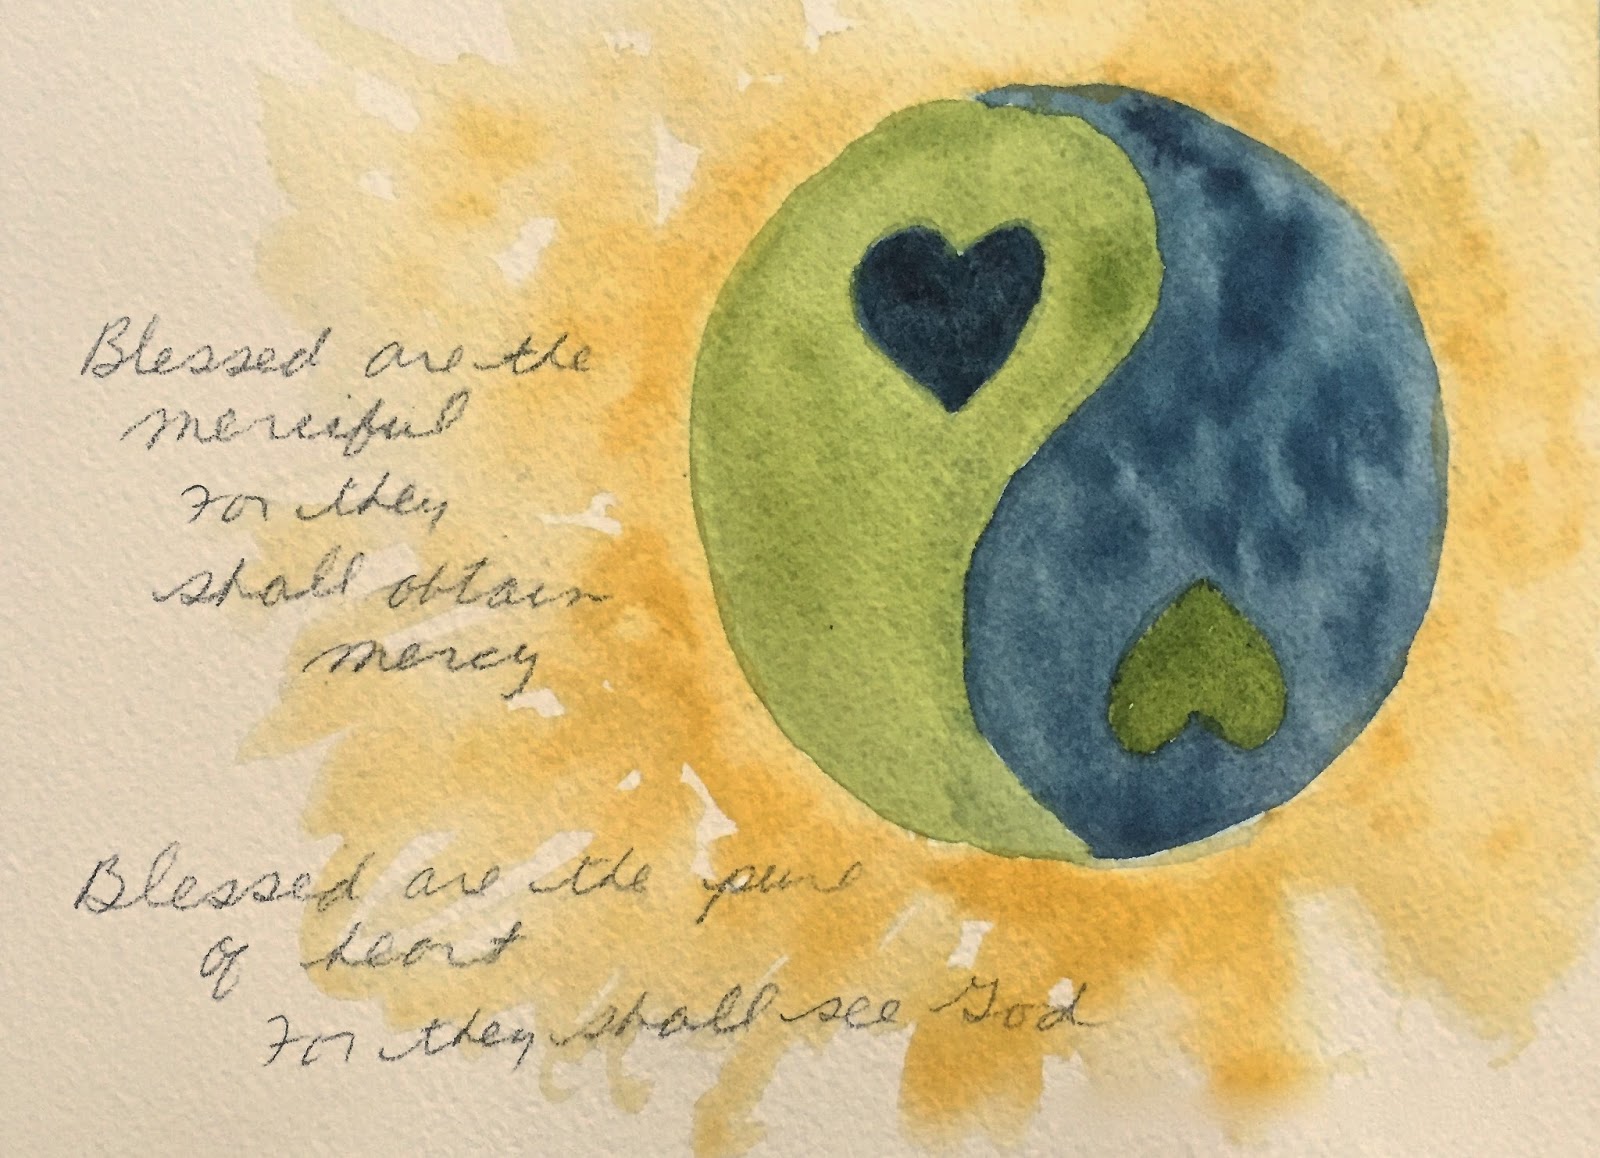 Blessed are the
merciful
For they
shall obtain
mercy
Blessed are the pure
of heart
For they shall see God